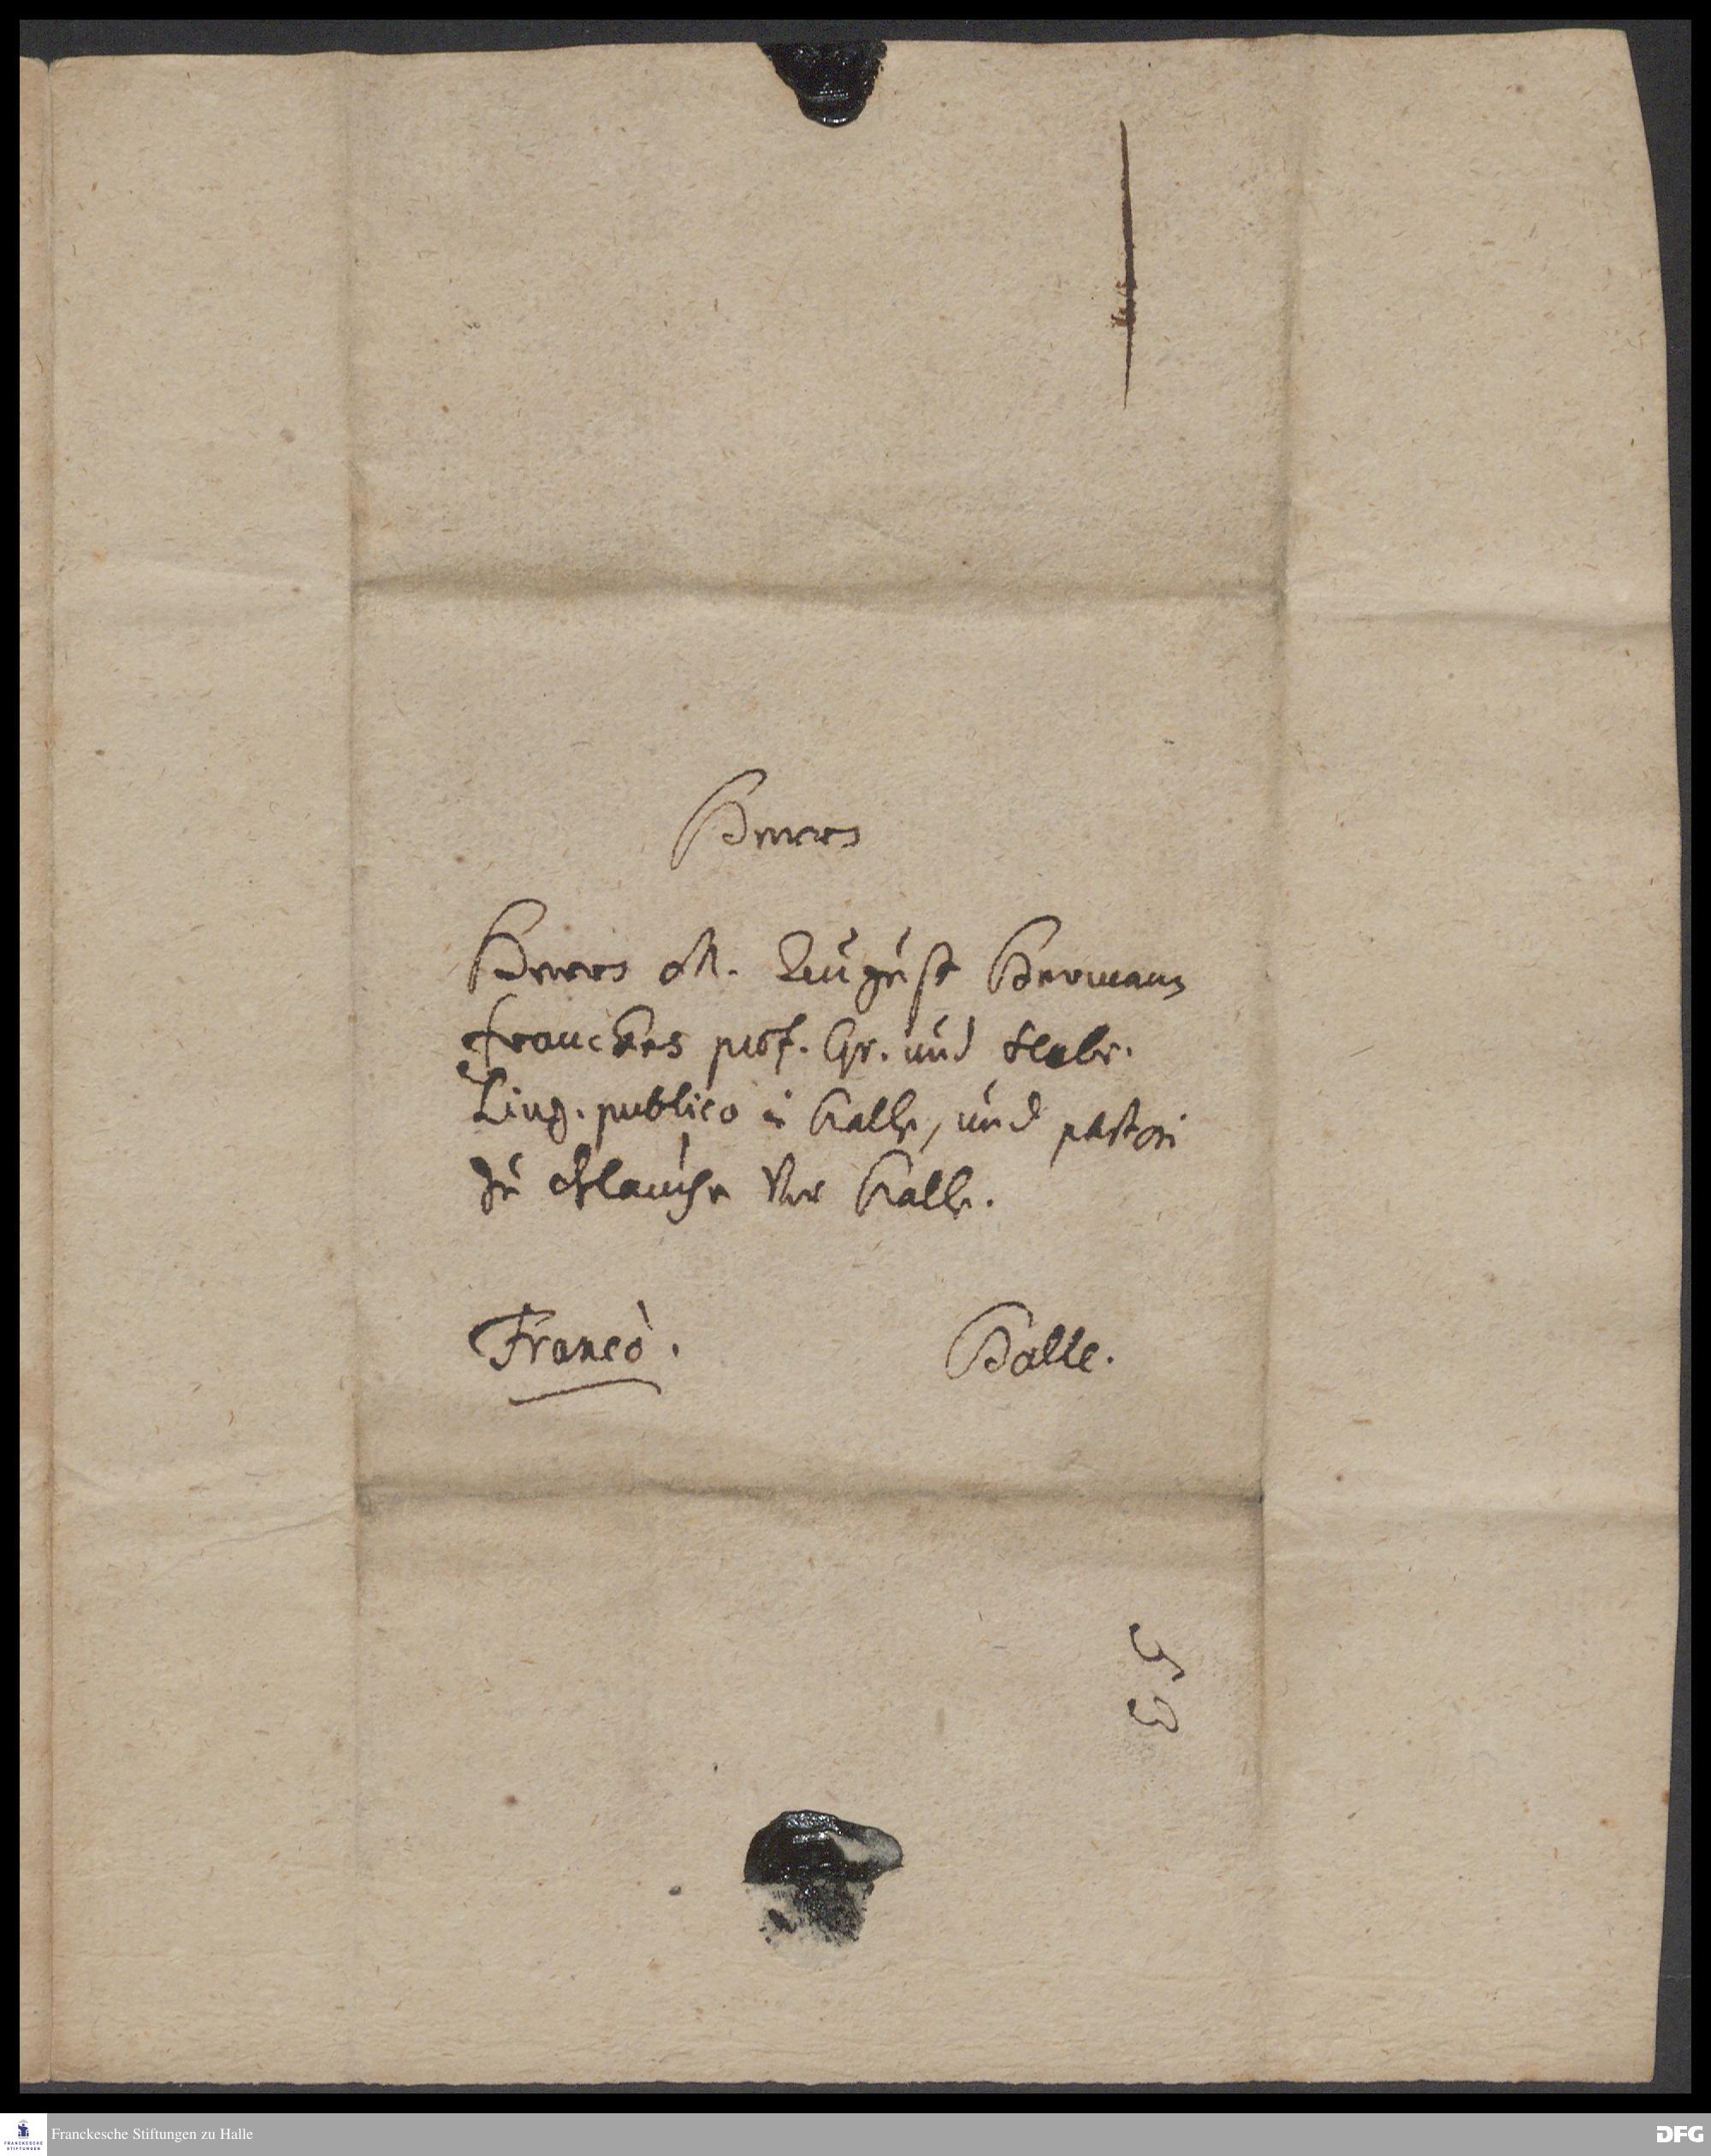 Herren
Herren M. August Herman
Francken prof. Gr. und Hebr.
Ling. publico in Halle, und pastori
zu Glaucha vor Halle.
Franco.
Halle.
Franckesche Stiftungen zu Halle
FRANCKESCHE
STIFTUNGEN
DFG